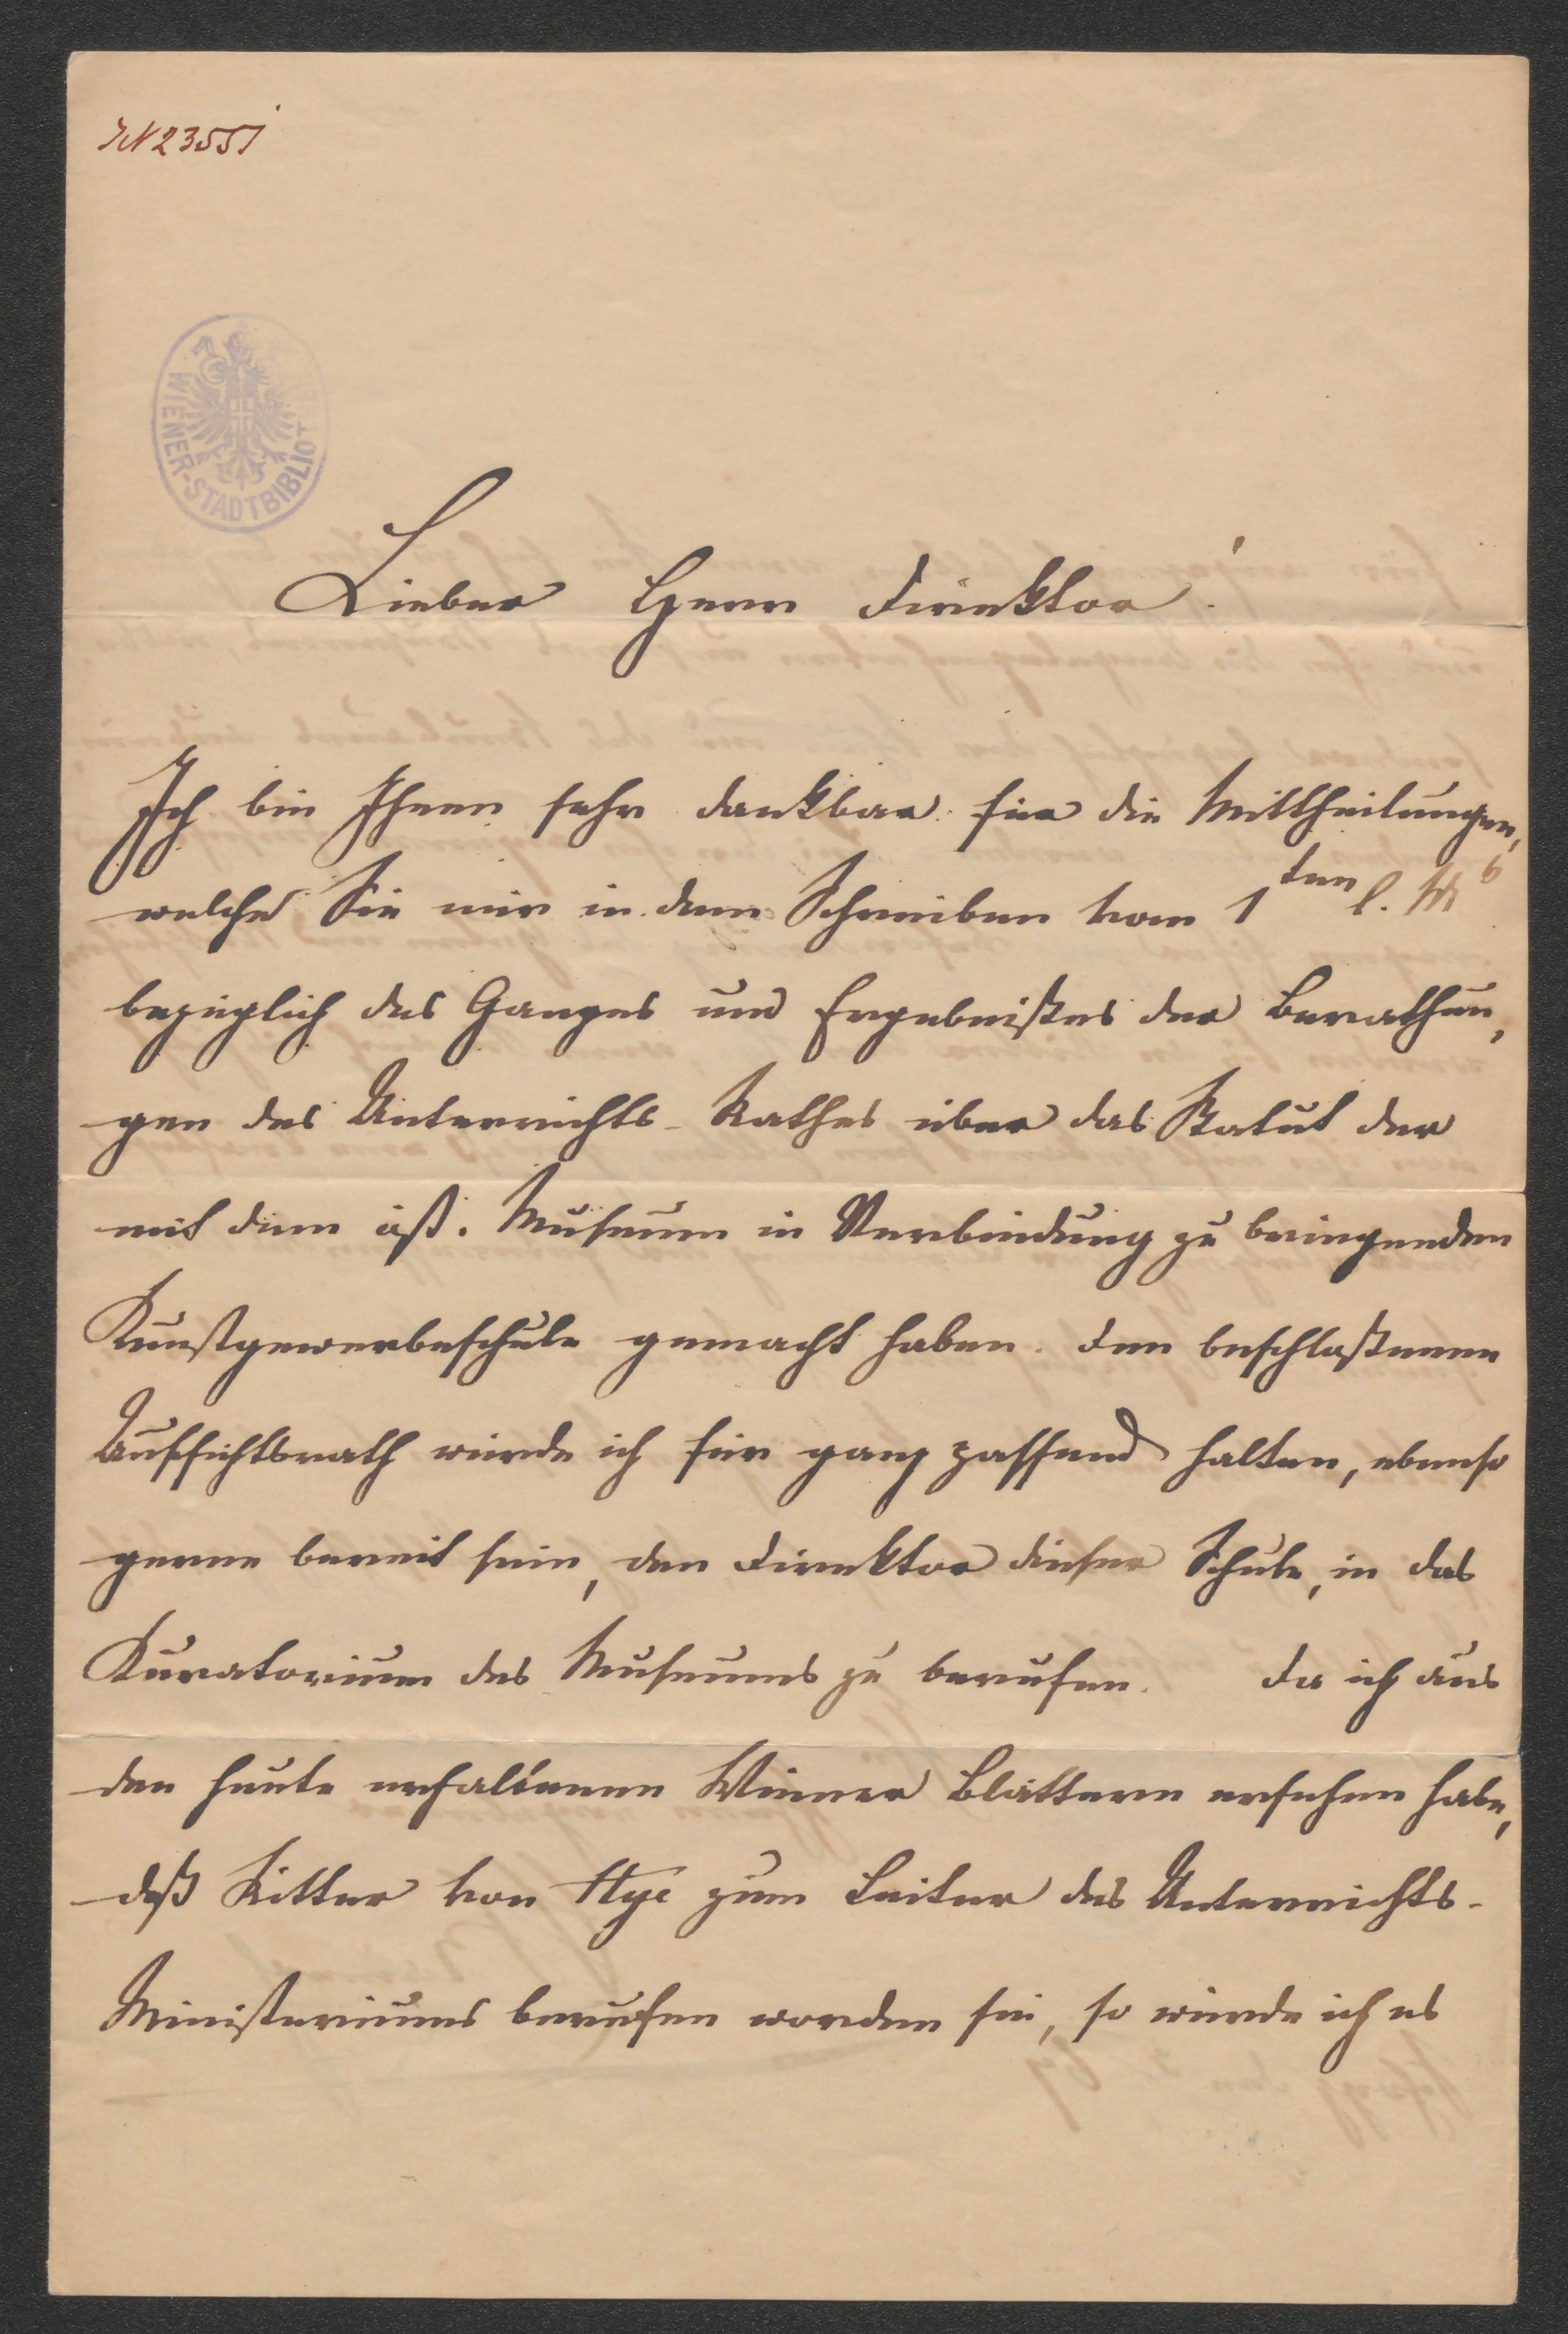 IN 23551
WIENER-STADTBIBLIOT
Lieber Herr Direktor!
Ich bin Ihnen sehr dankbar für die Mittheilungen,
welche Sie mir in dem Schreiben vom 1ten l. Ms
bezüglich des Ganges und Ergebnißes der Berathun,
gen des Unterrichts-Rathes über das Statut der
mit dem öst. Museum in Verbindung zu bringenden
Kunstgewerbeschule gemacht haben. Den beschloßenen
Aufsichtsrath würde ich für ganz passend halten, ebenso
gerne bereit sein, den Direktor dieser Schule, in das
Kuratorium des Museums zu berufen. Da ich aus
den heute erhaltenen Wiener Blättern ersehen habe,
daß Ritter von Hye zum Leiter des Unterrichts-
Ministeriums berufen worden sei, so würde ich es